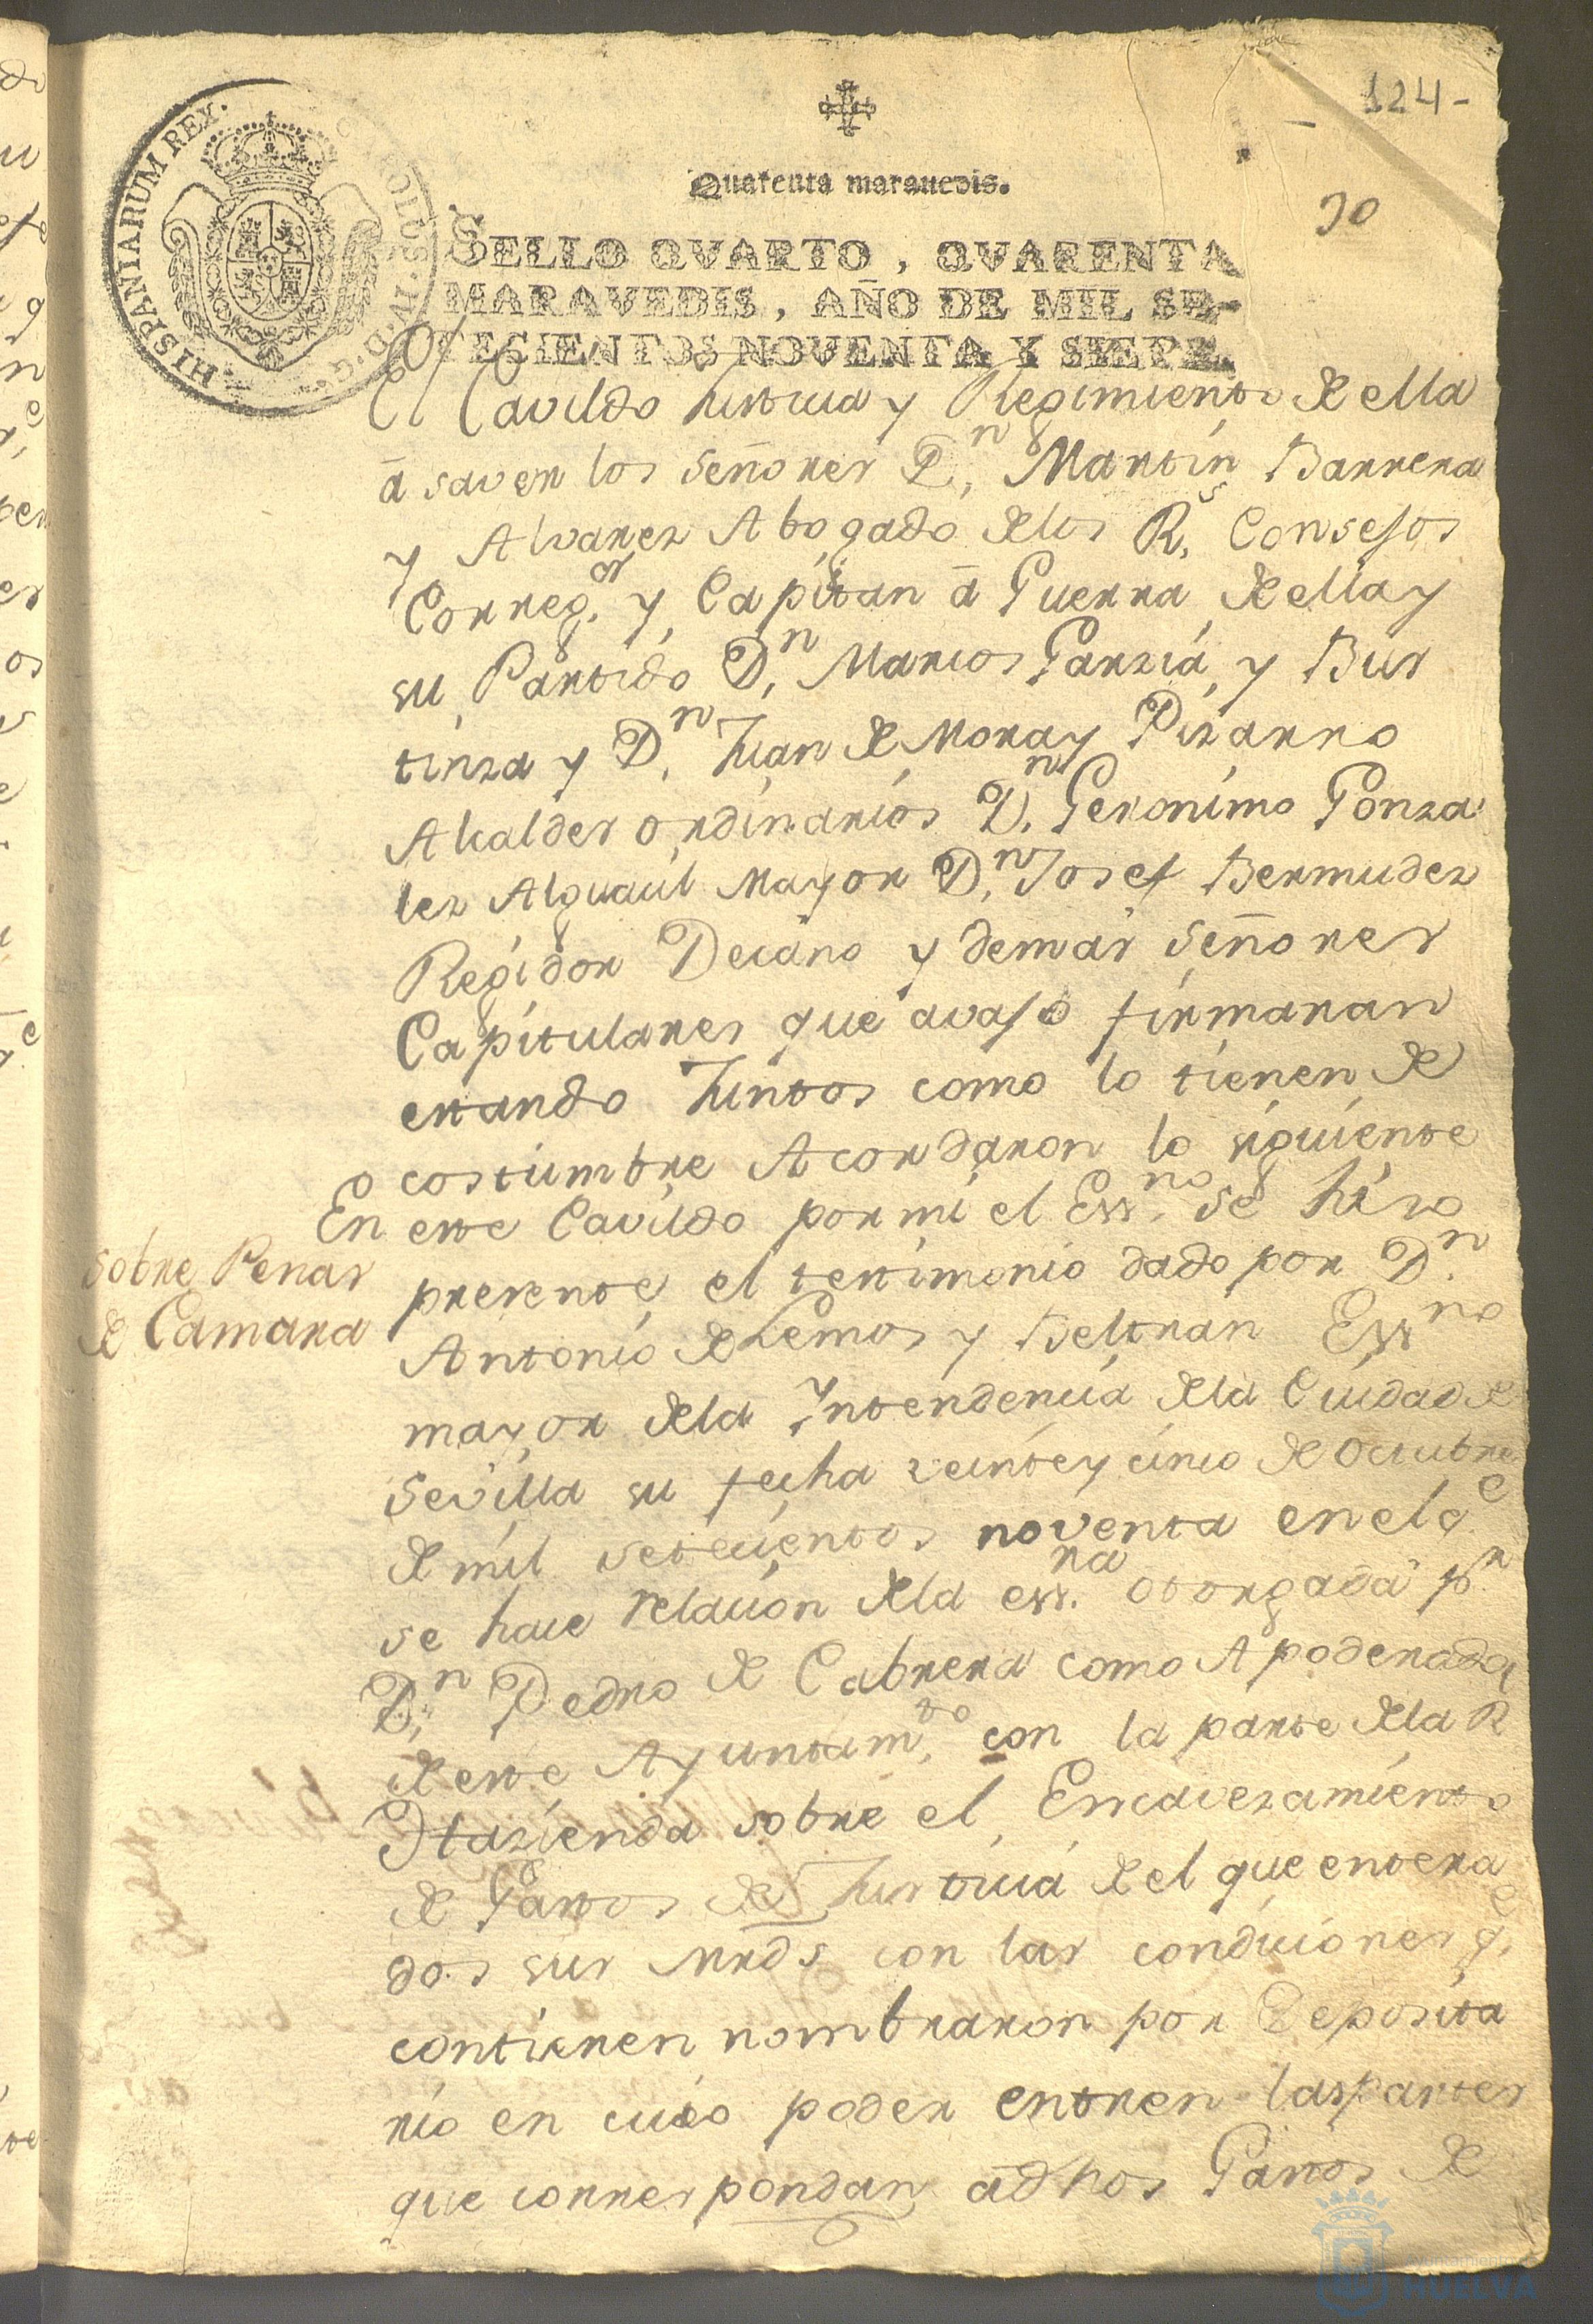 124-
Quarenta maravedis.
90
HISPANIARUM REX. CAROLUS. IV. D. G.
SELLO QVARTO, QVARENTA
MARAVEDIS, AÑO DE MIL SE-
TECIENTOS NOVENTA Y SIETE.
El Cavildo Justicia y Regimiento de ella
â saver los señores Dn. Martin Barrera
y Alvarez Abogado delos Rs. Consejos
Correg.or y Capitan â Guerra de ella y
su Partido Dn. Marcos Garzia y Bus
tinza y Dn. Juan de Mora y Pizarro
Alcaldes ordinarios Dn. Geronimo Gonza
lez Alguacil Mayor Dn. Josef Bermudez
Regidor Decano y demas señores
Capitulares que avajo firmaran
estando Juntos como lo tienen de
costumbre Acordaron lo siguiente
En este Cavildo por mi el Ess.no se hizo
sobre Penas
de Camara
presente el testimonio dado por Dn.
Antonio de Lemos y Beltran Essno
mayor dela Yntendencia dela Ciudad de
Sevilla su fecha veinte y cinco de Octubre
de mil setecientos noventa en el qe
se hace relacion dela ess.na otorgada pr.
Dn. Pedro de Cabrera como Apoderado
de este Ayuntam.to con la parte dela R
Hazienda sobre el Encavezamiento
de Gastos de Justicia de el que entera
dos sus Mrds con las condiciones qe.
contienen nombraron por Deposita
rio en cuio poder entren las partes
que correspondan âdhos Gastos de
HUELVA